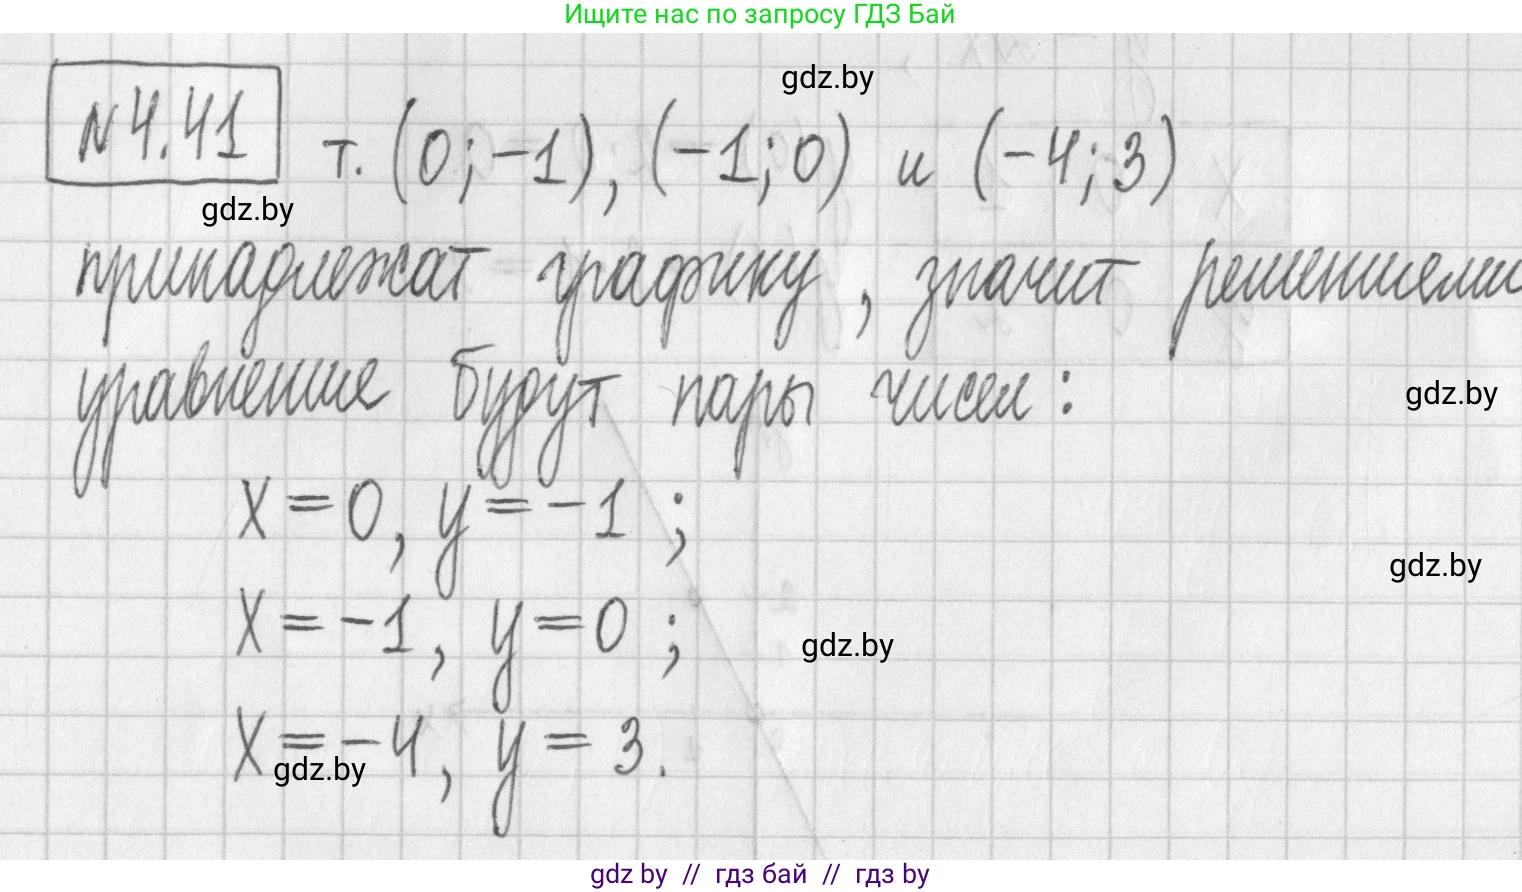 Ищите нас по запросу ГДЗ Бай
gdz.by
№ 4.41 т. (0; -1), (-1; 0) и (-4; 3)
gdz.by
принадлежат графику, значит решениями
уравнение будут пары чисел:
gdz.by
x = 0, y = -1 ;
gdz.by
x = -1, y = 0 ;
gdz.by
x = -4, y = 3.
gdz.by
gdz by // гдз бай // гдз by